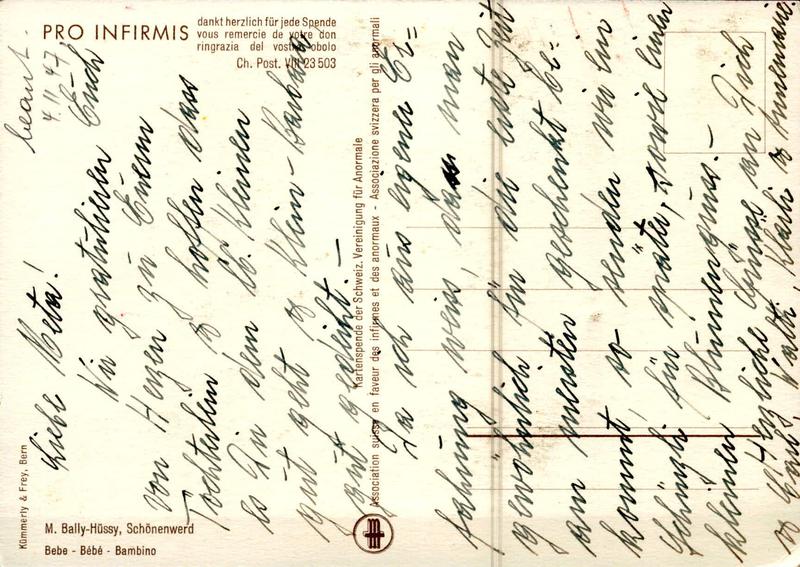 PRO INFIRMIS
dankt herzlich für jede Spende
vous remercie de votre don
ringrazia del vostro obolo
Ch. Post. VIII 23503
beant.
4. 11. 47.
Liebe Meta!
Wir gratulieren Euch
von Herzen zu Euerm
Töchterlein & hoffen dass
es Dir & dem lb. Kleinen
gut geht & Klein-Barbara
gut gedeiht. –
Da ich aus eigener Er=
fahrung weiss, dass man
gewöhnlich für die erste Zeit
am meisten geschenkt be-
kommt, so senden wir ein
für später, sowie einen
kleinen Blumengruss. –
Herzliche Grüsse an Dich
& Hans, Walti
Kartenspende der Schweiz. Vereinigung für Anormale
Association suisse en faveur des infirmes et des anormaux - Associazione svizzera per gli anormali
Kümmerly & Frey, Bern
M. Bally-Hüssy, Schönenwerd
Bebe - Bébé - Bambino